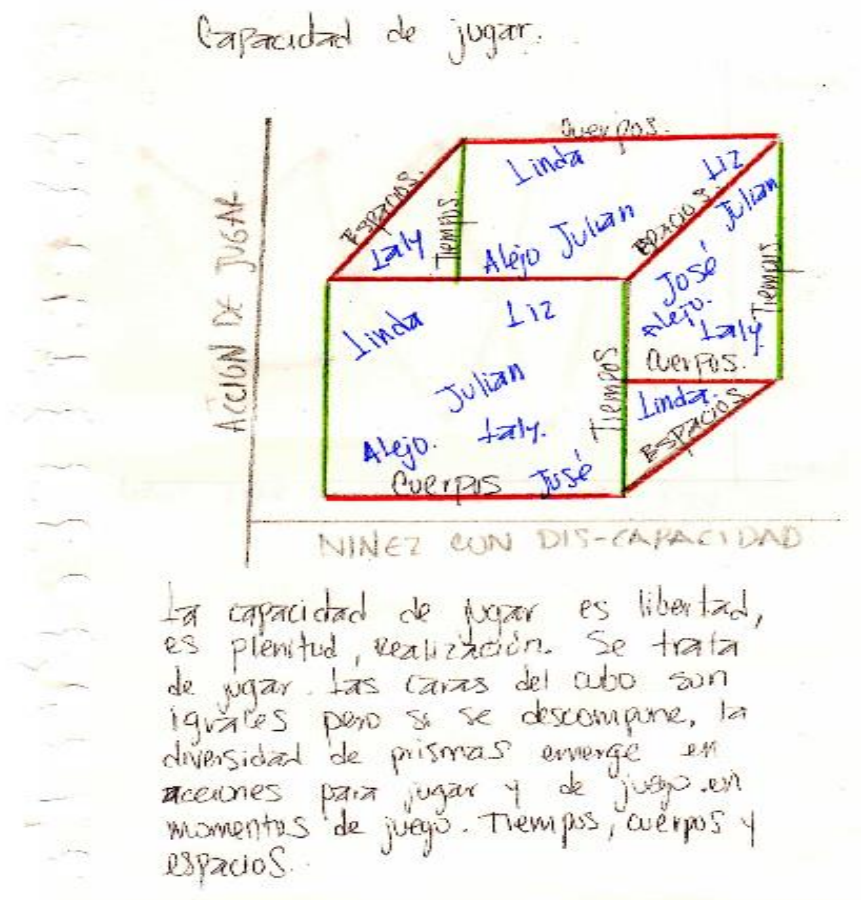 Capacidad de jugar.
Cuerpos.
Linda
Liz
Espacios.
Tiempos.
Laly
Alejo Julian
Espacios.
Julian
José
Alejo.
Laly
Tiempos
Cuerpos.
Linda.
Espacios
ACCION DE JUGAR
Linda
Liz
Julian
Alejo. Laly.
Tiempos
Cuerpos José
NIÑEZ CON DIS-CAPACIDAD
La capacidad de jugar es libertad,
es plenitud, realización. Se trata
de jugar. Las caras del cubo son
iguales pero si se descompone, la
diversidad de prismas emerge en
acciones para jugar y de juego en
momentos de juego. Tiempos, cuerpos y
espacios.